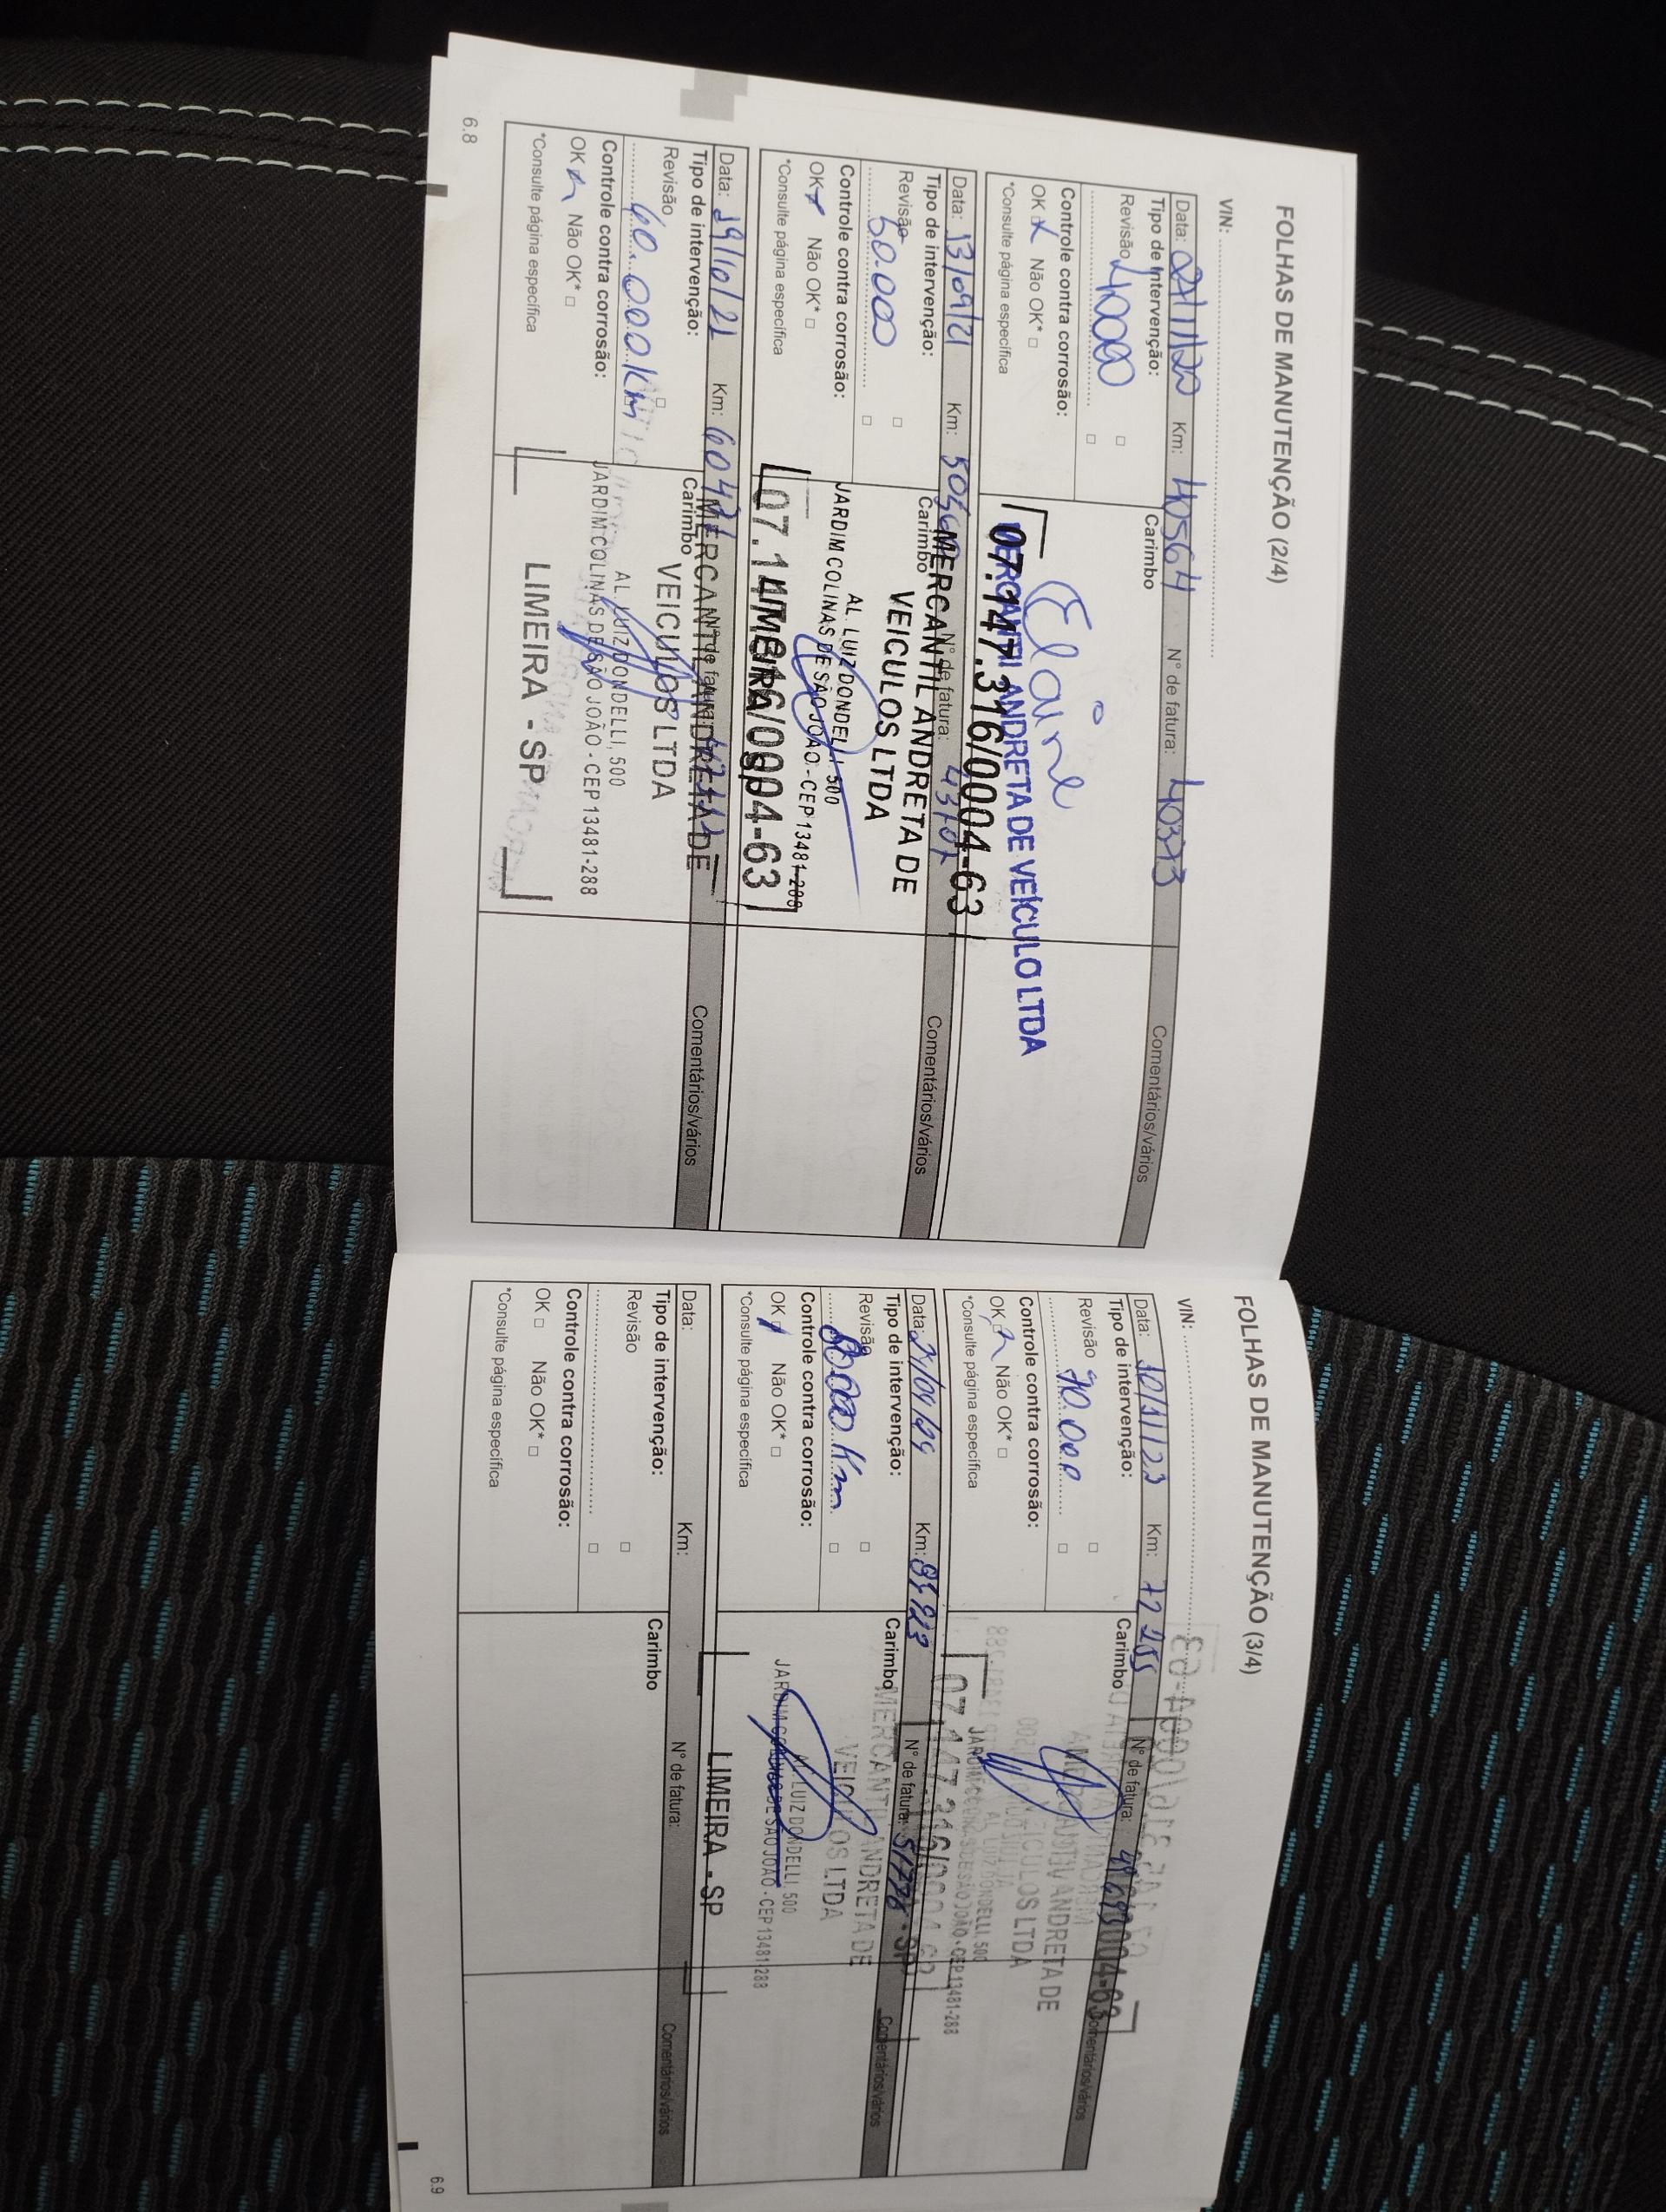 FOLHAS DE MANUTENÇÃO (2/4)
VIN:
Data: Km: 40564 N° de fatura: 40373
Tipo de Intervenção: Carimbo Comentários/vários
Revisão 40000
Elaine
Controle contra corrosão:
ANDRETA DE VEÍCULO LTDA
OK Não OK*
*Consulte página específica
07.147.316/0004-63
Data: 13/09/21 Km: N° de fatura: 43707
Tipo de intervenção: Carimbo Comentários/vários
MERCANTIL ANDRETA DE
Revisão 50.000
VEICULOS LTDA
Controle contra corrosão:
AL. LUIZ DONDELLI, 500
JARDIM COLINAS DE SÃO JOÃO - CEP 13481-288
OK Não OK*
*Consulte página específica
LIMEIRA SP
07.147.316/0004-63
Data: 19/10/21 Km: N° de fatura:
Tipo de intervenção: Carimbo Comentários/vários
MERCANTIL ANDRETA DE
Revisão
VEICULOS LTDA
60.000km
Controle contra corrosão:
AL. LUIZ DONDELLI, 500
JARDIM COLINAS DE SÃO JOÃO - CEP 13481-288
OK Não OK*
*Consulte página específica
LIMEIRA - SP
6.8
FOLHAS DE MANUTENÇÃO (3/4)
VIN:
Data: 10/1/23 Km: 72 255 N° de fatura:
Tipo de intervenção: Carimbo Comentários/vários
Revisão 70.000
ANDRETA DE
VEICULOS LTDA
Controle contra corrosão:
AL. LUIZ DONDELLI, 500
JARDIM COLINAS DE SÃO JOÃO - CEP 13481-288
OK Não OK*
*Consulte página específica
Data: Km: N° de fatura: 51776
Tipo de intervenção: Carimbo Comentários/vários
MERCANTIL ANDRETA DE
Revisão
VEICULOS LTDA
80000 Km
Controle contra corrosão:
AL. LUIZ DONDELLI, 500
JARDIM COLINAS DE SÃO JOÃO - CEP 13481-288
OK Não OK*
*Consulte página específica
LIMEIRA - SP
Data: Km: N° de fatura:
Tipo de intervenção: Carimbo Comentários/vários
Revisão
Controle contra corrosão:
OK Não OK*
*Consulte página específica
6.9